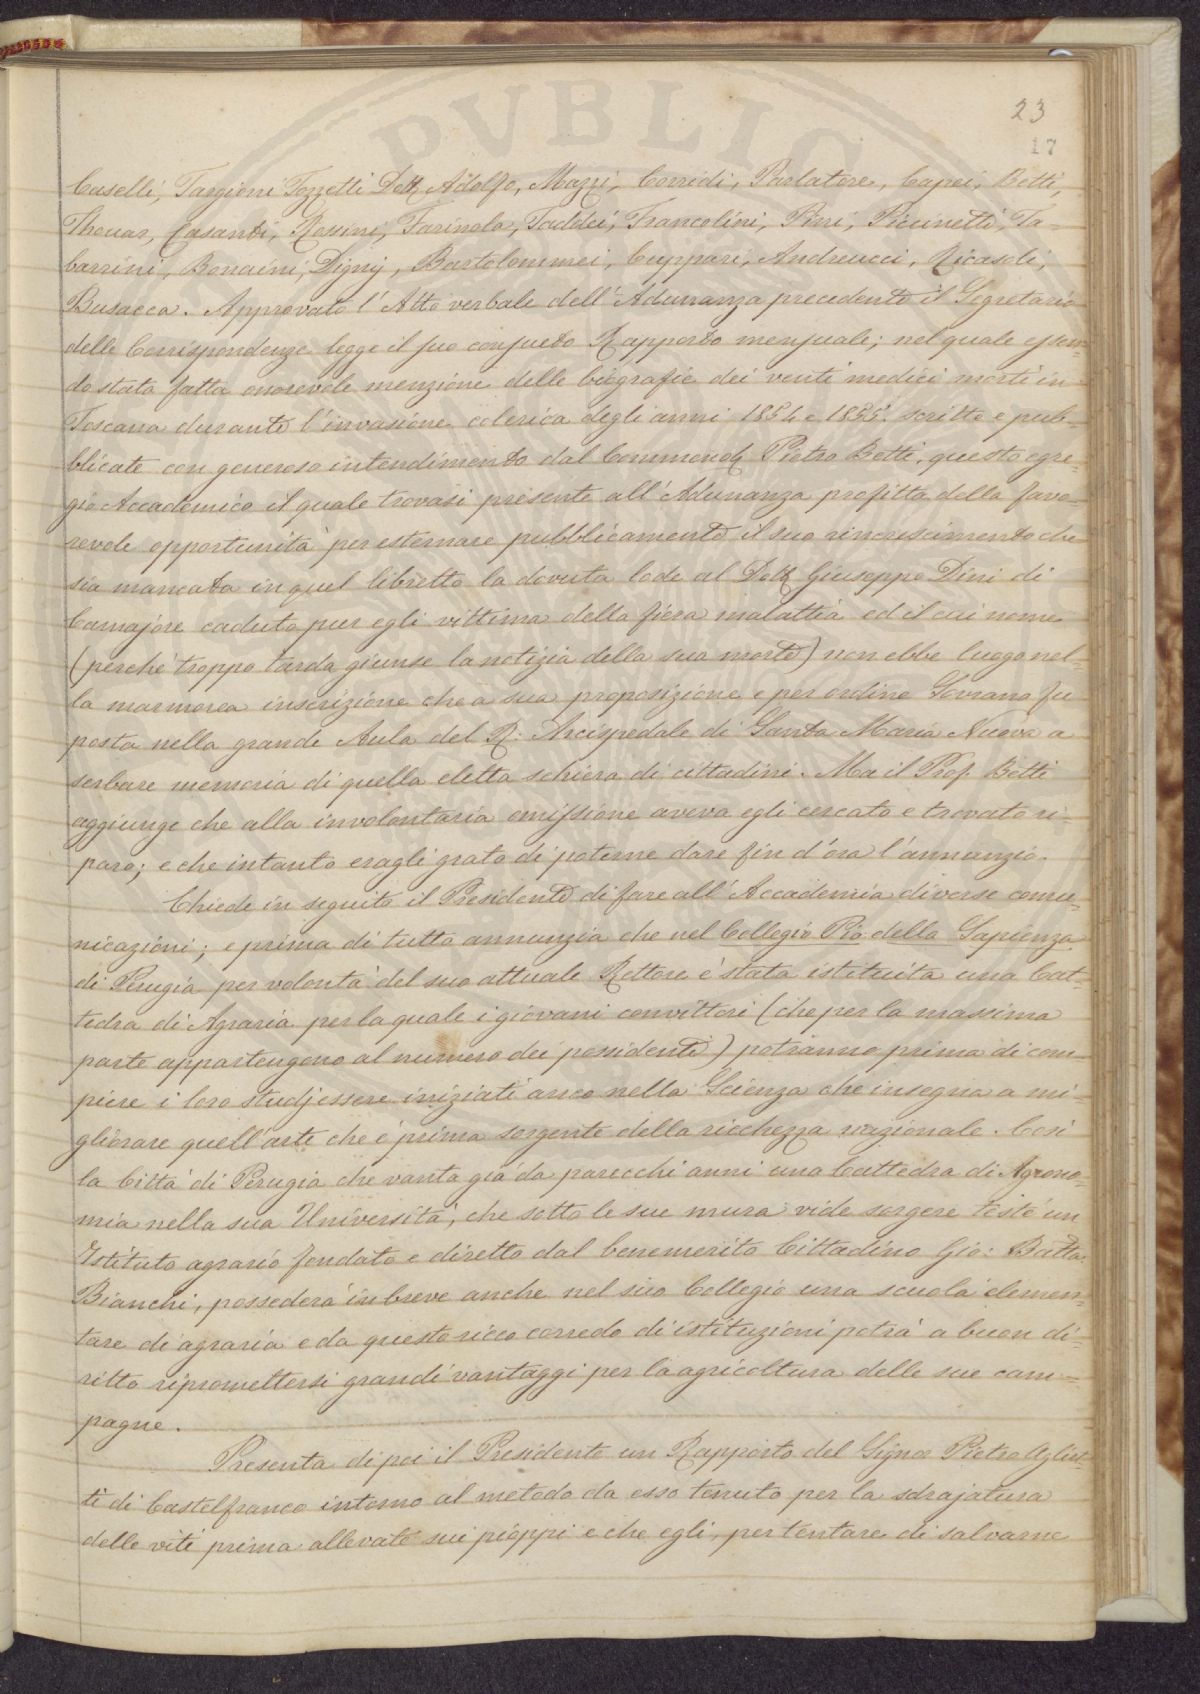 23
17
Caselli, Targioni Tozzetti Dott. Adolfo, Mazzi, Corridi, Parlatore, Capei, Betti,
Thouar, Casanti, Rossini, Farinola, Taddei, Francolini, Pini, Picinetti, Ta-
barrini, Bonaini, Digny, Bartolommei, Cuppari, Andreucci, Ricasoli,
Busacca. Approvato l'Atto verbale dell'Adunanza precedente il Segretario
delle Corrispondenze legge il suo consueto Rapporto mensuale; nel quale essen-
do stata fatta onorevole menzione delle biografie dei venti medici morti in
Toscana durante l'invasione colerica degli anni 1854 e 1855. scritte e pub-
blicate con generoso intendimento dal Commend. Pietro Betti, questo egre-
gio Accademico il quale trovasi presente all'Adunanza profitta della favo-
revole opportunità per esternare pubblicamente il suo rincrescimento che
sia mancata in quel libretto la dovuta lode al Dott. Giuseppe Dini di
Camajore caduto pur egli vittima della fiera malattia ed il cui nome
(perché troppo tarda giunse la notizia della sua morte) non ebbe luogo nel-
la marmorea inscrizione che a sua proposizione e per ordine Sovrano fu
posta nella grande Aula del R. Arcispedale di Santa Maria Nuova a
serbare memoria di quella eletta schiera di cittadini. Ma il Prof. Betti
aggiunge che alla involontaria omissione aveva egli cercato e trovato ri-
paro; e che intanto eragli grato di poterne dare fin d'ora l'annunzio.
Chiede in seguito il Presidente di fare all'Accademia diverse comu-
nicazioni; e prima di tutto annunzia che nel Collegio Pio della Sapienza
di Perugia per volontà del suo attuale Rettore è stata istituita una Cat-
tedra di Agraria per la quale i giovani convittori (che per la massima
parte appartengono al numero dei possidenti) potranno prima di com-
piere i loro studj essere iniziati anco nella Scienza che insegna a mi-
gliorare quell'arte che è prima sorgente della ricchezza nazionale. Così
la Città di Perugia che vanta già da parecchi anni una Cattedra di Agrono-
mia nella sua Università, che sotto le sue mura vide sorgere testè un
Istituto agrario fondato e diretto dal benemerito Cittadino Gio: Batta
Bianchi, possederà in breve anche nel suo Collegio una scuola elemen-
tare di agraria e da questo ricco corredo di istituzioni potrà a buon di-
ritto ripromettersi grandi vantaggi per la agricoltura delle sue cam-
pagne.
Presenta di poi il Presidente un Rapporto del Signor Pietro
ti di Castelfranco intorno al metodo da esso tenuto per la sdrajatura
delle viti prima allevate sui pioppi e che egli, per tentare di salvarne
PVBLIC